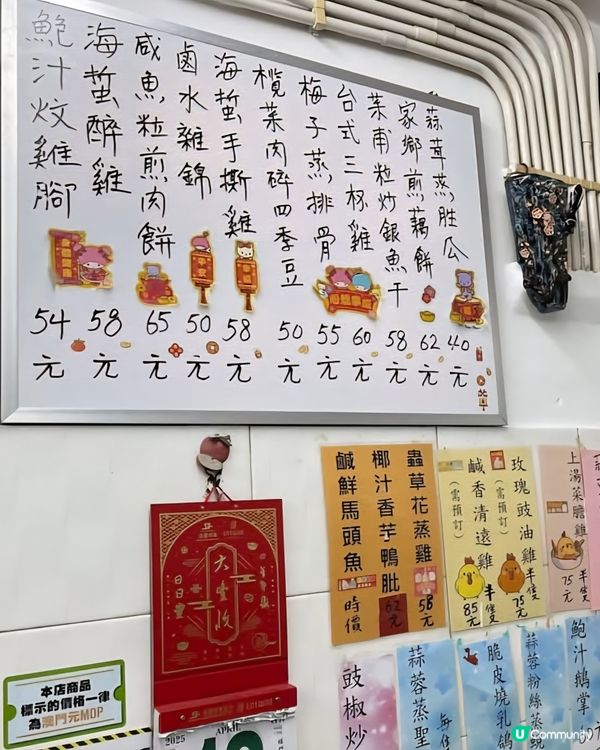 蒜茸蒸胜瓜
40元
家鄉煎藕餅
62元
菜甫粒炒銀魚干
58元
台式三杯雞
60元
梅子蒸排骨
55元
欖菜肉碎四季豆
50元
海蜇手撕雞
58元
鹵水雜錦
50元
咸魚粒煎肉餅
65元
海蜇醉雞
58元
鮑汁炆雞腳
54元
上湯菜膽雞
半隻
75元
玫瑰豉油雞
(需預訂)
半隻
75元
鹹香清遠雞
(需預訂)
半隻
85元
蟲草花蒸雞
58元
椰汁香芋鴨肶
62元
鹹鮮馬頭魚
時價
鮑汁鵝掌
蒜蓉粉絲蒸
脆皮燒乳鴿
蒜蓉蒸聖
豉椒炒
大豐收
日日
2025
APRIL
本店商品
標示的價格一律
為澳門元MOP
U Community